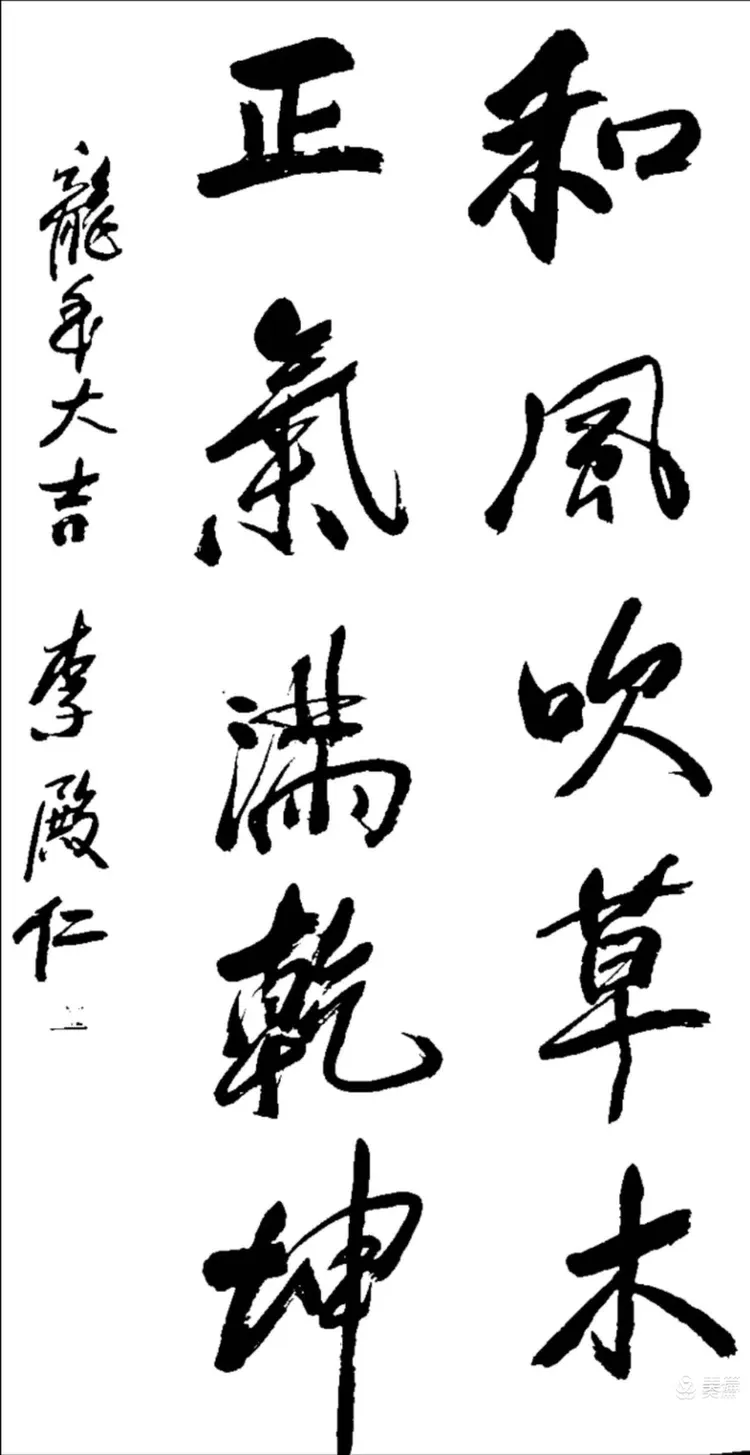 和風吹草木
正氣滿乾坤
龍年大吉 李殿仁
美篇